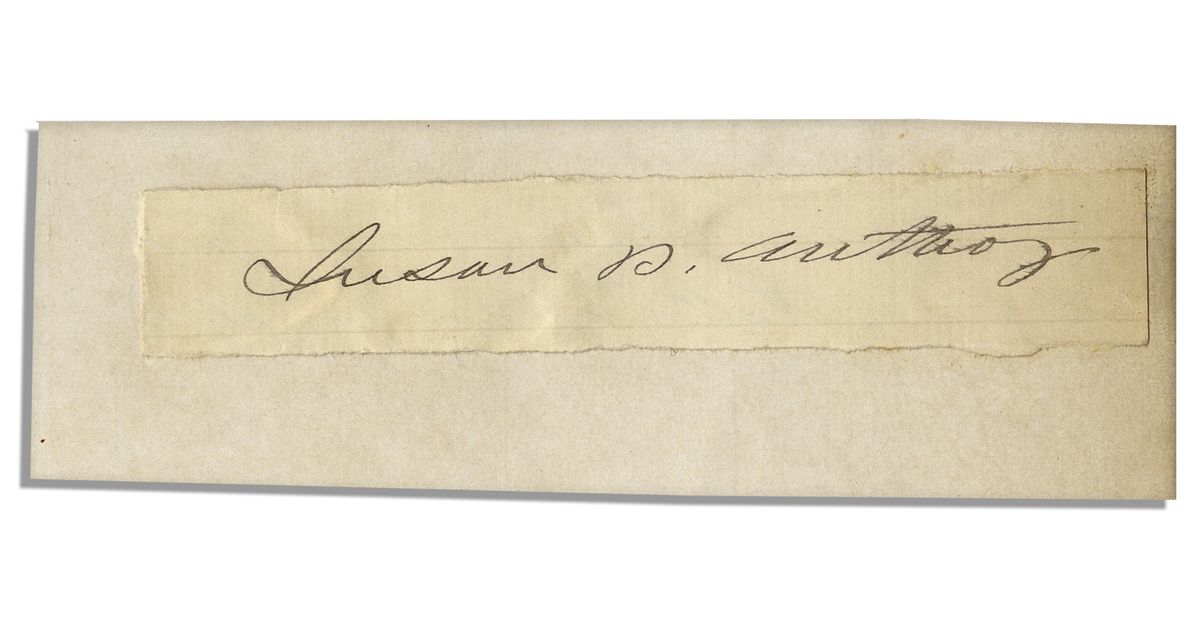 Susan B. Anthony